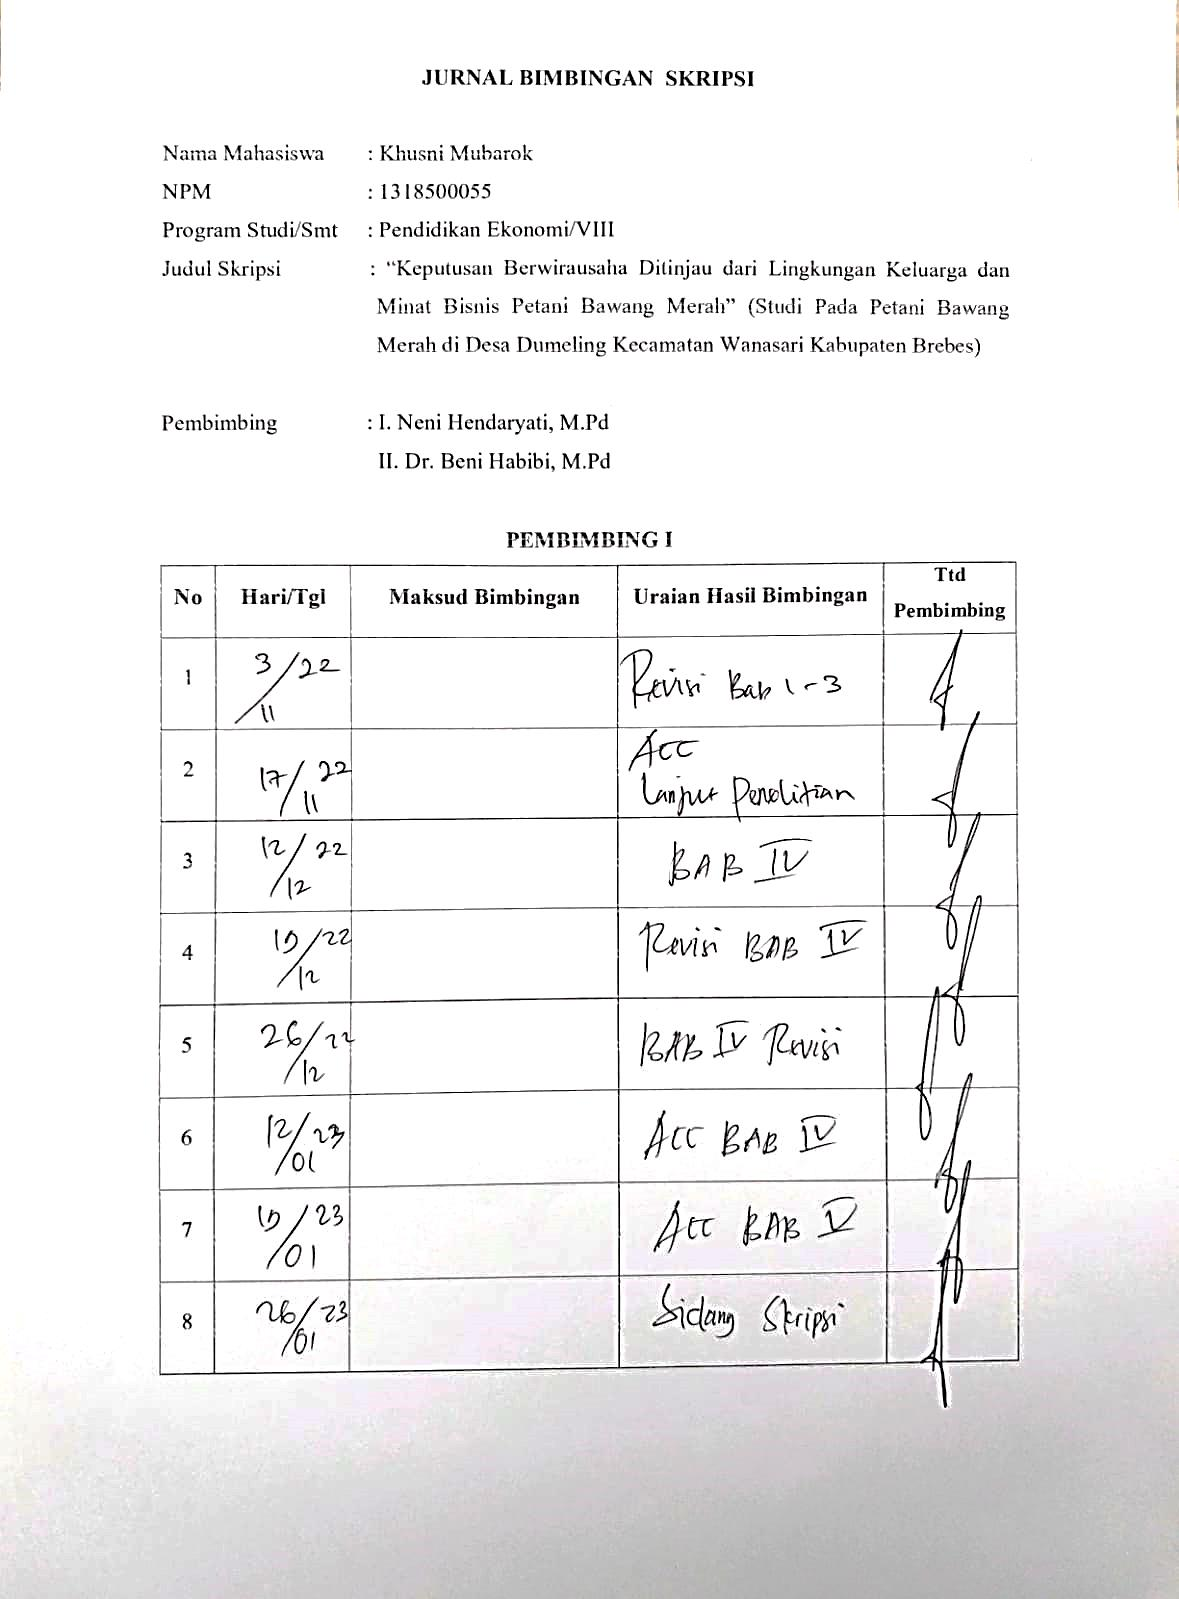 JURNAL BIMBINGAN SKRIPSI
Nama Mahasiswa : Khusni Mubarok
NPM : 1318500055
Program Studi/Smt : Pendidikan Ekonomi/VIII
Judul Skripsi : “Keputusan Berwirausaha Ditinjau dari Lingkungan Keluarga dan
Minat Bisnis Petani Bawang Merah” (Studi Pada Petani Bawang
Merah di Desa Dumeling Kecamatan Wanasari Kabupaten Brebes)
Pembimbing : I. Neni Hendaryati, M.Pd
II. Dr. Beni Habibi, M.Pd
PEMBIMBING I
No Hari/Tgl Maksud Bimbingan Uraian Hasil Bimbingan Ttd Pembimbing
1 3/11/22 Revisi Bab 1-3
2 17/11/22 ACC
Lanjut Penelitian
3 12/12/22 BAB IV
4 19/12/22 Revisi BAB IV
5 26/12/22 BAB IV Revisi
6 12/01/23 ACC BAB IV
7 19/01/23 ACC BAB V
8 26/01/23 Sidang Skripsi